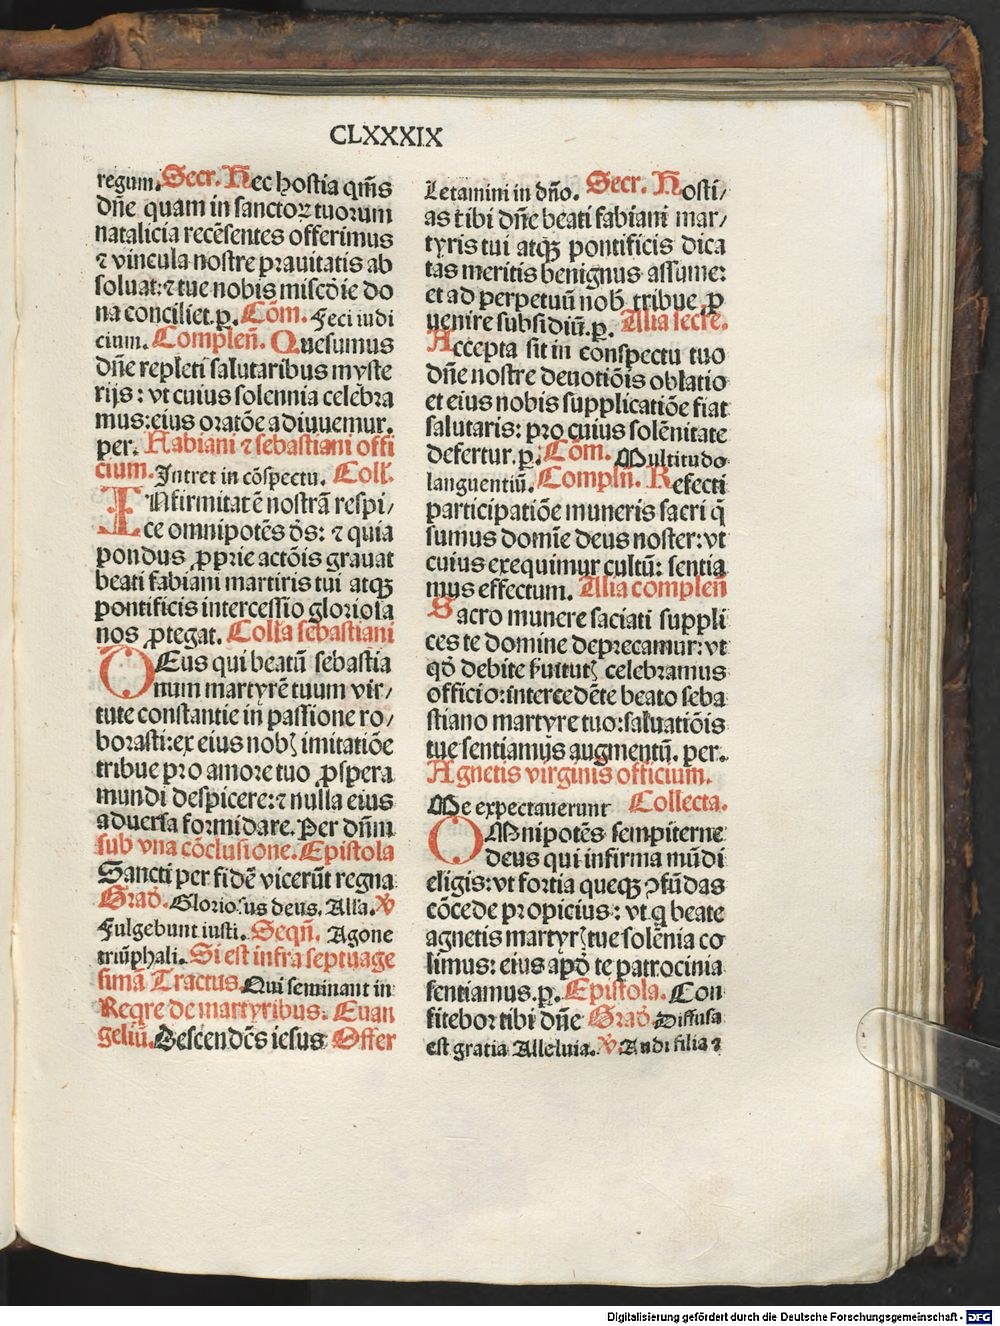 CLXXXIX
regum. Secr. Hec hostia qm̃s
dñe quam in sanctoꝝ tuorum
natalicia recẽsentes offerimus
⁊ vincula nostre prauitatis ab
soluat: ⁊ tue nobis miscõie do
na conciliet. ꝑ. Cõm. Feci iudi
cium. Compleñ. Quesumus
dñe repleti salutaribus myste
rijs: vt cuius solennia celebra
mus: eius oratõe adiuuemur.
per. Fabiani ⁊ sebastiani offi
cium. Intret in cõspectu. Coll.
INfirmitatẽ nostrã respi/
ce omnipotẽs ds̃: ⁊ quia
pondus ꝓprie actõis grauat
beati fabiani martiris tui atqꝫ
pontificis intercessio gloriosa
nos ꝓtegat. Coll̃a sebastiani
DEus qui beatũ sebastia
num martyrẽ tuum vir/
tute constantie in passione ro/
borasti: ex eius nobꝭ imitatiõe
tribue pro amore tuo ꝓspera
mundi despicere: ⁊ nulla eius
aduersa formidare. Per dñm
sub vna cõclusione. Epistola
Sancti per fidẽ vicerũt regna
Grad̃. Gloriosus deus. All̃a. ℣
Fulgebunt iusti. Seqñ. Agone
triũphali. Si est infra septuage
simã Tractus. Qui seminant in
Reqre de martyribus. Euan
geliũ. Descendẽs iesus Offer
Letamini in dño. Secr. Hosti/
as tibi dñe beati fabiani mar/
tyris tui atqꝫ pontificis dica
tas meritis benignus assume:
et ad perpetuũ nob̃ tribue ꝑ
uenire subsidiũ. ꝑ. Alia secre.
Accepta sit in conspectu tuo
dñe nostre deuotiõis oblatio
et eius nobis supplicatiõe fiat
salutaris: pro cuius solẽnitate
defertur. ꝑ. Cõm. Multitudo
languentiũ. Complñ. Refecti
participatiõe muneris sacri q̃
sumus domĩe deus noster: vt
cuius exequimur cultũ: sentia
mus effectum. Alia compleñ
Sacro munere saciati suppli
ces te domine deprecamur: vt
qd̃ debite ẜuitutꝭ celebramus
officio: intercedẽte beato seba
stiano martyre tuo: saluatiõis
tue sentiamus augmentũ. per.
Agnetis virginis officium.
Me expectauerunt Collecta.
OMnipotẽs sempiterne
deus qui infirma mũdi
eligis: vt fortia queqꝫ ꝯfũdas
cõcede propicius: vt q̃ beate
agnetis martyrꝭ tue solẽnia co
limus: eius apd̃ te patrocinia
sentiamus. ꝑ. Epistola. Con
fitebor tibi dñe Grad̃. Diffusa
est gratia Alleluia. ℣. Audi filia ⁊
Digitalisierung gefördert durch die Deutsche Forschungsgemeinschaft - DFG